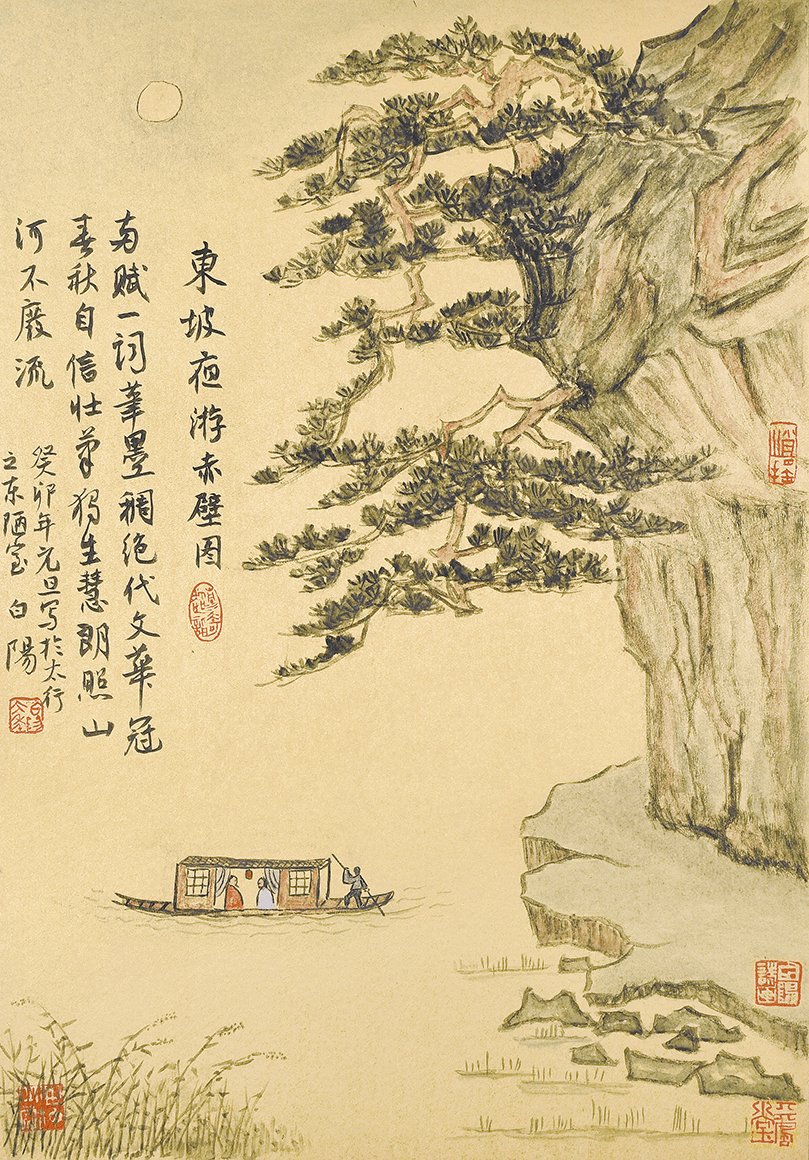 東坡夜游赤壁图
两赋一词筆墨稠绝代文華冠
春秋自信壮独生慧朗照山
河不废流
癸卯年元旦写於太行
之东陋室 白陽